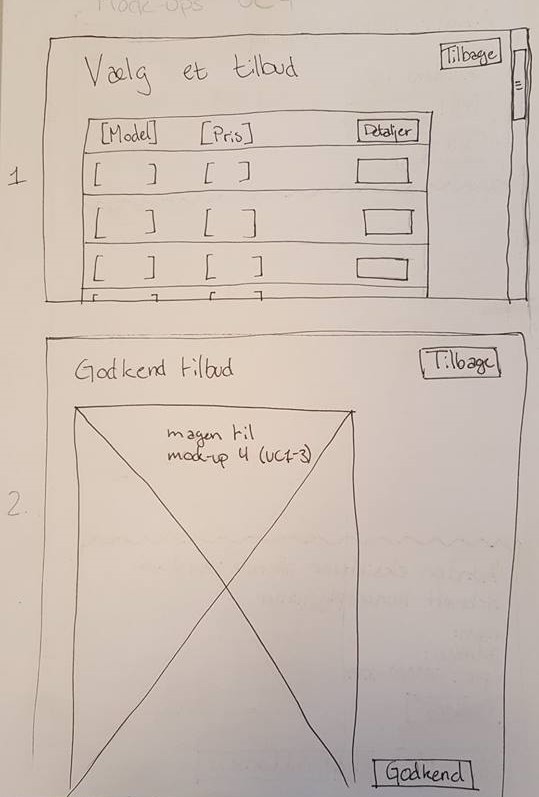 Mock-ups UC4
Vælg et tilbud
Tilbage
[Model] [Pris] Detaljer
1
[ ] [ ]
[ ] [ ]
[ ] [ ]
Godkend tilbud
Tilbage
magen til
mock-up 4 (UC1-3)
2.
Godkend